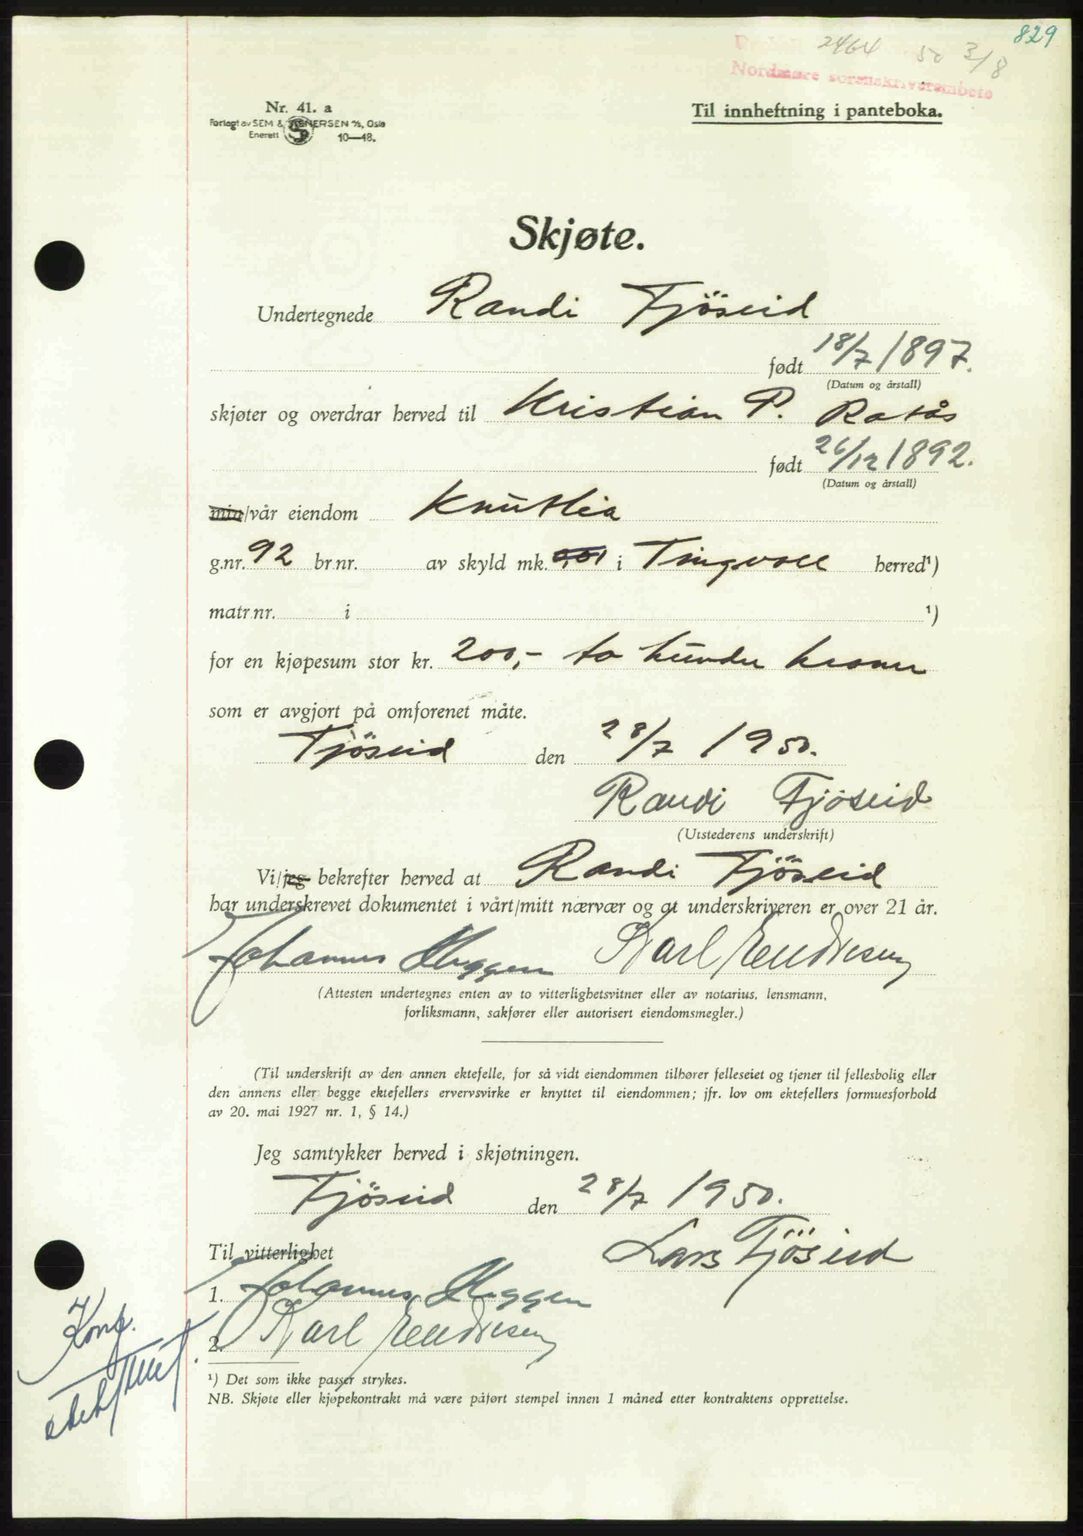 829
2464 50 3/8
Nordmøre sorenskriverembete
Nr. 41. a
Forlagt av SEM & STENERSEN A/S, Oslo
Enerett 10—48.
Til innheftning i panteboka.
Skjøte.
Undertegnede Randi Tjöseid
født 18/7 1897.
(Datum og årstall)
skjøter og overdrar herved til Kristian P. Rotås
født 26/12 1892.
(Datum og årstall)
min/vår eiendom Knutlia
g.nr. 92 br.nr. av skyld mk. 0,01 i Tingvoll herred¹)
matr.nr. i ¹)
for en kjøpesum stor kr. 200,- to hundre kroner
som er avgjort på omforenet måte.
Tjöseid den 28/7 1950.
Randi Tjöseid
(Utstederens underskrift)
Vi/jeg bekrefter herved at Randi Tjöseid
har underskrevet dokumentet i vårt/mitt nærvær og at underskriveren er over 21 år.
Johannes Karl
(Attesten undertegnes enten av to vitterlighetsvitner eller av notarius, lensmann,
forliksmann, sakfører eller autorisert eiendomsmegler.)
(Til underskrift av den annen ektefelle, for så vidt eiendommen tilhører felleseiet og tjener til fellesbolig eller
den annens eller begge ektefellers ervervsvirke er knyttet til eiendommen; jfr. lov om ektefellers formuesforhold
av 20. mai 1927 nr. 1, § 14.)
Jeg samtykker herved i skjøtningen.
Tjöseid den 28/7 1950.
Til vitterlighet Lars Tjöseid
1. Johannes
2. Karl
Konf.
¹) Det som ikke passer strykes.
NB. Skjøte eller kjøpekontrakt må være påført stempel innen 1 måned etter kontraktens opprettelse.